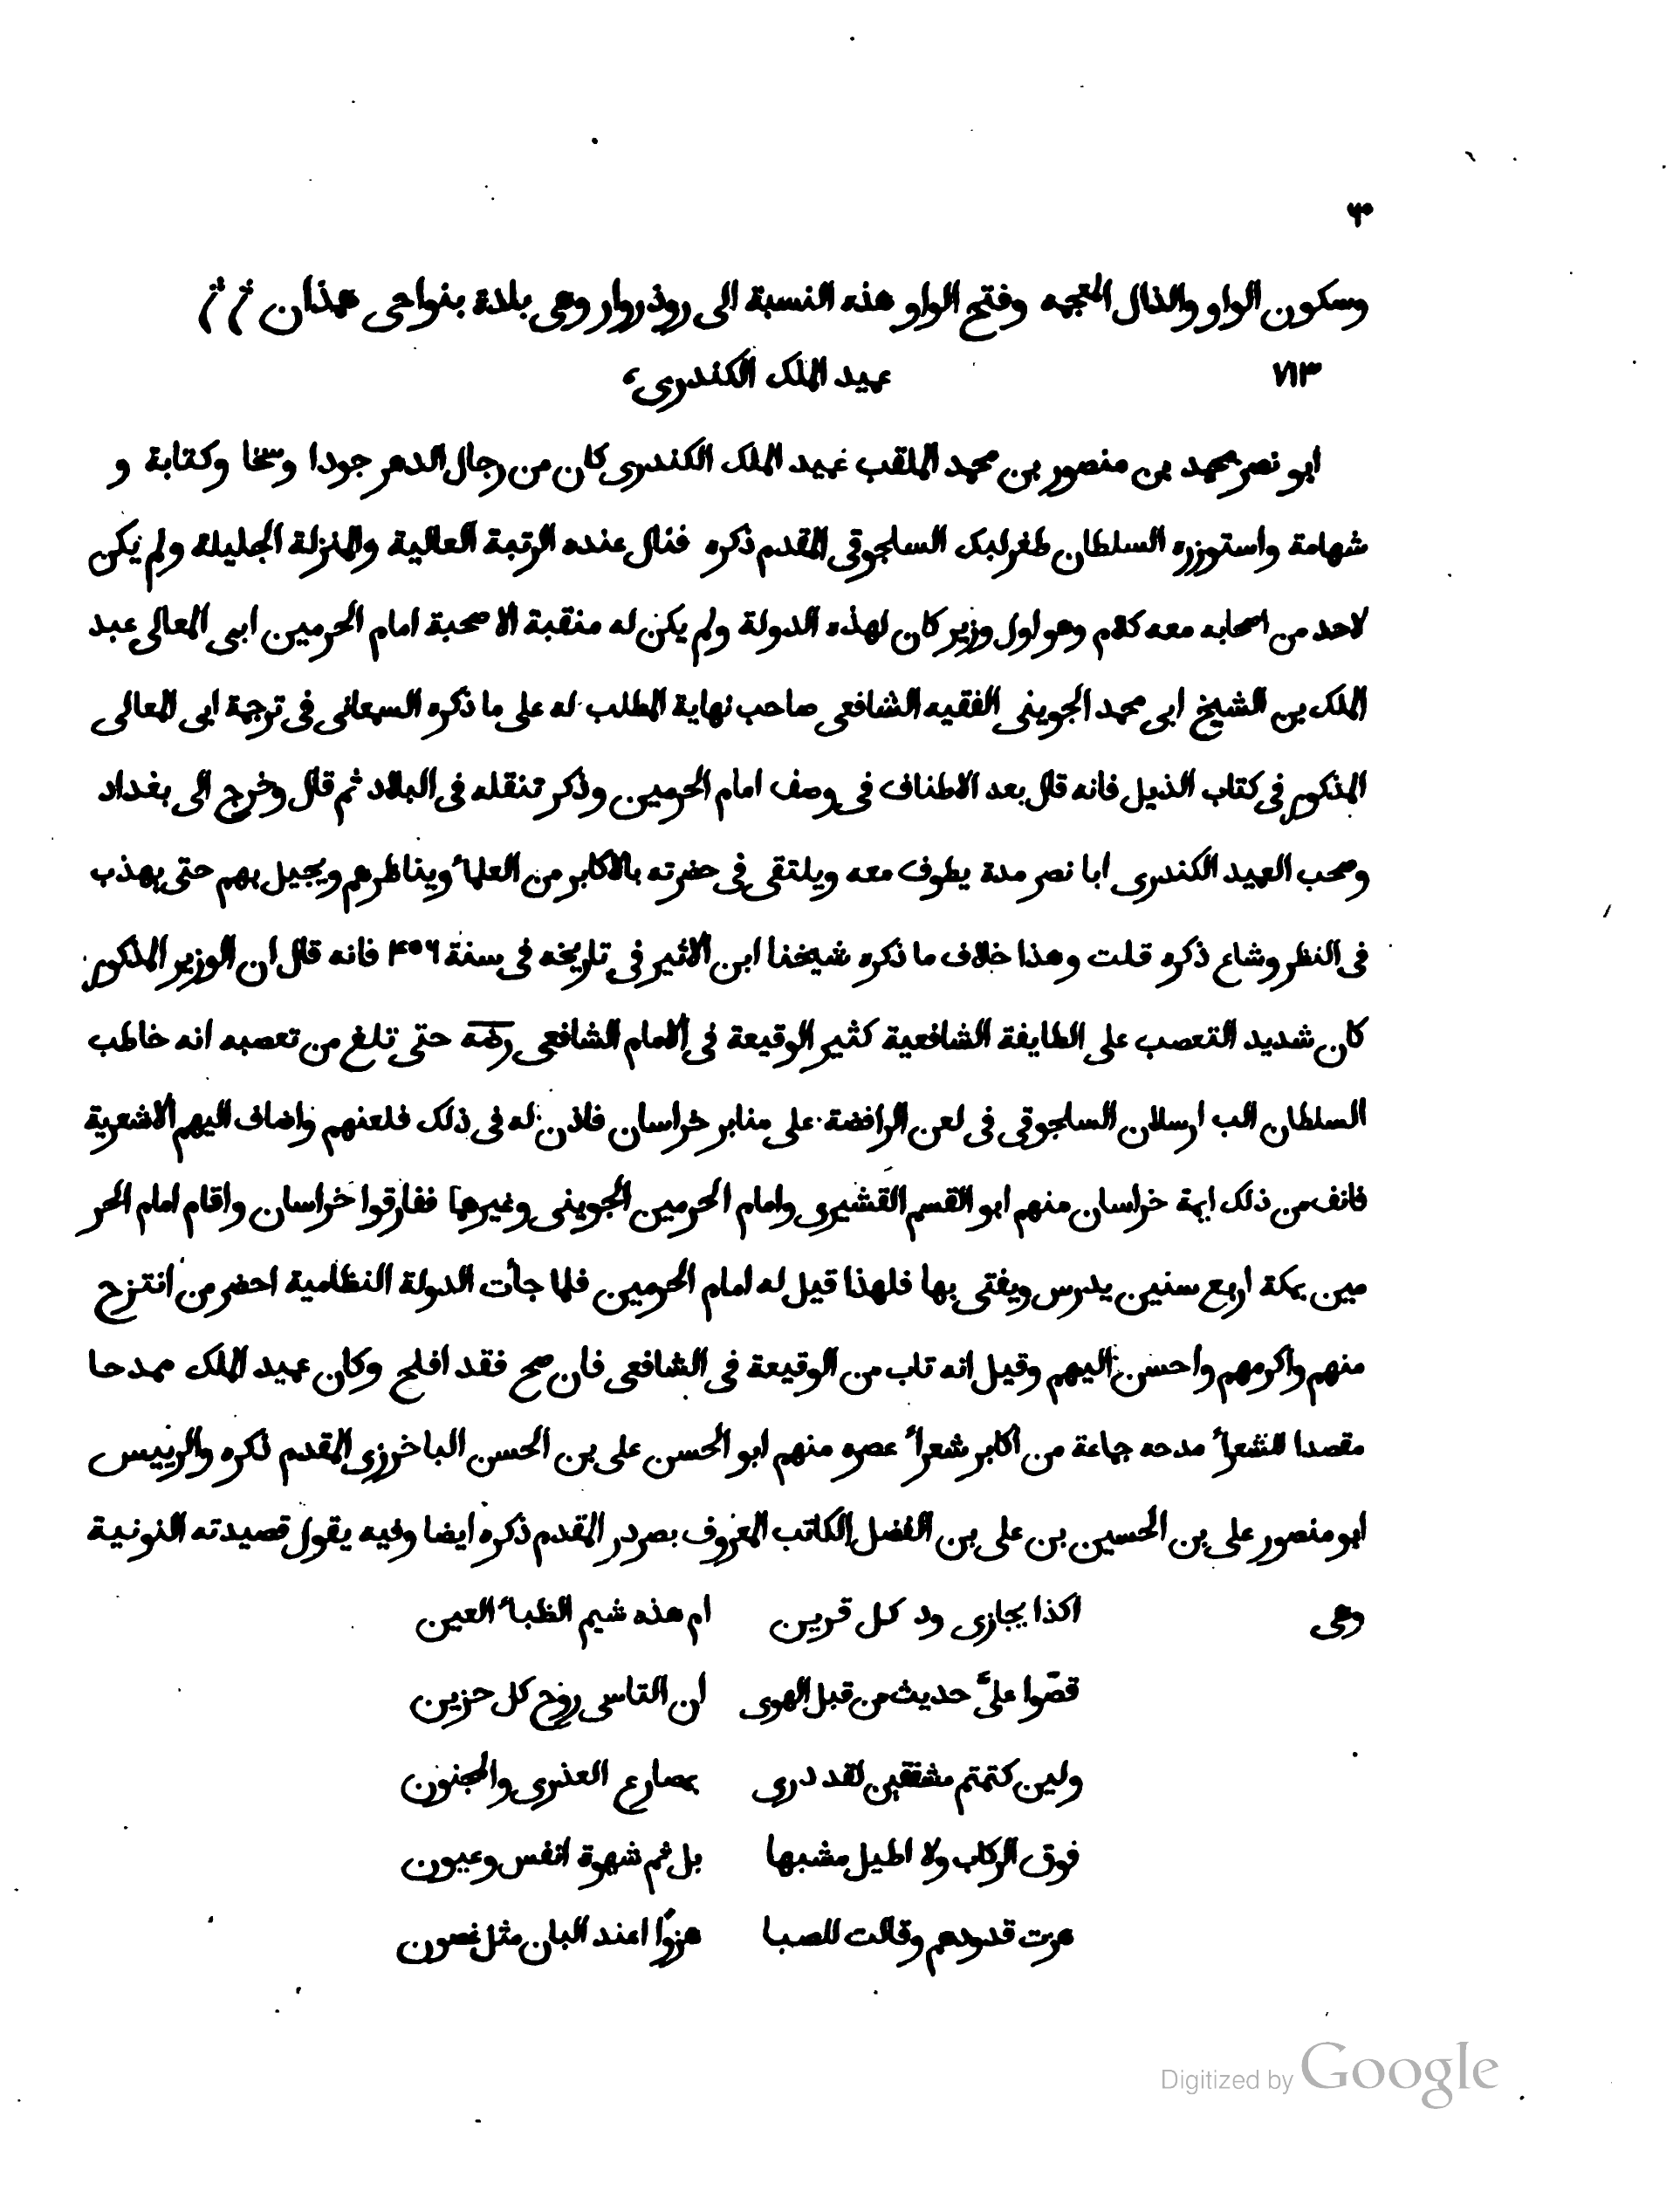 ٣٠
وسكون الواو والذال المعجمه وفتح الواو هذه النسبة الى روذروار وهى بلدة بنواحى همذان
٧١٣ عميد الملك الكندرى،
ابو نصر محمد بن منصور بن محمد الملقب عميد الملك الكندرى كان من رجال الدهر جودا وسخا وكتابة و
شهامة واستوزره السلطان طغرلبك السلجوقى المقدم ذكره فنال عنده الرتبة العالية والمنزلة الجليلة ولم يكن
لاحد من اصحابه معه كلام وهو اول وزير كان لهذه الدولة ولم يكن له منقبة الا صحبة امام الحرمين ابى المعالى عبد
الملك بن الشيخ ابى محمد الجوينى الفقيه الشافعى صاحب نهاية المطلب له على ما ذكره السمعانى فى ترجمة ابى المعالى
المذكور فى كتاب الذيل فانه قال بعد الاطناف فى وصف امام الحرمين وذكر تنقله فى البلاد ثم قال وخرج الى بغداد
وصحب العميد الكندرى ابا نصر مدة يطوف معه ويلتقى فى حضرته بالاكابر من العلمأ ويناظرهم ويجيل بهم حتى يهذب
فى النظر وشاع ذكره قلت وهذا خلاف ما ذكره شيخنا ابن الاثير فى تاريخه فى سنة ۴٥٦ فانه قال ان الوزير المذكور
كان شديد التعصب على الطايفة الشافعية كثير الوقيعة فى الامام الشافعى رضه حتى تلغ من تعصبه انه خاطب
السلطان الب ارسلان السلجوقى فى لعن الرافضة على منابر خراسان فاذن له فى ذلك فلعنهم واضاف اليهم الاشعرية
فانف من ذلك ايمة خراسان منهم ابو القسم القشيرى وامام الحرمين الجوينى وغيرهما ففارقوا خراسان واقام امام الحر
مين بمكة اربع سنين يدرس ويفتى بها فلهذا قيل له امام الحرمين فلما جأت الدولة النظامية احضر من انتزح
منهم واكرمهم واحسن اليهم وقيل انه تاب من الوقيعة فى الشافعى فان صح فقد افلح وكان عميد الملك ممدحا
مقصدا للشعرأ مدحه جماعة من اكابر شعرأ عصره منهم ابو الحسن على بن الحسن الباخرزى المقدم ذكره والرييس
ابو منصور على بن الحسين بن على بن الفضل الكاتب المعروف بصردر المقدم ذكره ايضا وفيه يقول قصيدته النونية
وهى اكذا يجازى ود كل قرين ام هذه شيم الظبأ العين
قصّوا علىّ حديث من قبل الهوى ان التاسى روح كل حزين
ولين كتمتم مشفقين لقد درى بمصارع العذرى والمجنون
فوق الركاب ولا اطيل مشبها بل ثم شهوة انفس وعيون
هزت قدودهم وقالت للصبا هزوًا اعند البان مثل غصون
Digitized by Google